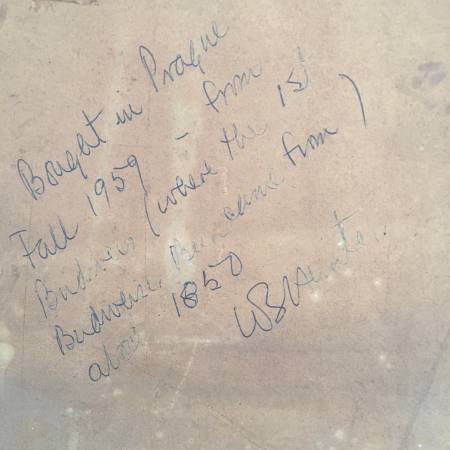 Bought in Prague
Fall 1959 - from
Budweis (where the 1st
Budweiser Beer came from)
about 1850